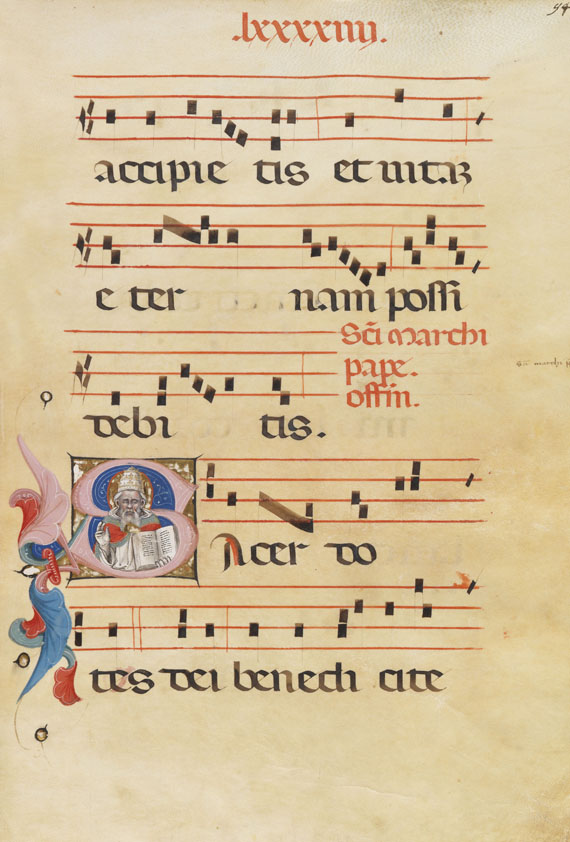 .lxxxxiiii.
94
accipie tis et uitaz
e ter nam possi
Sci marchi
pape.
offin.
debi tis.
S Acer do
tes dei benedi cite